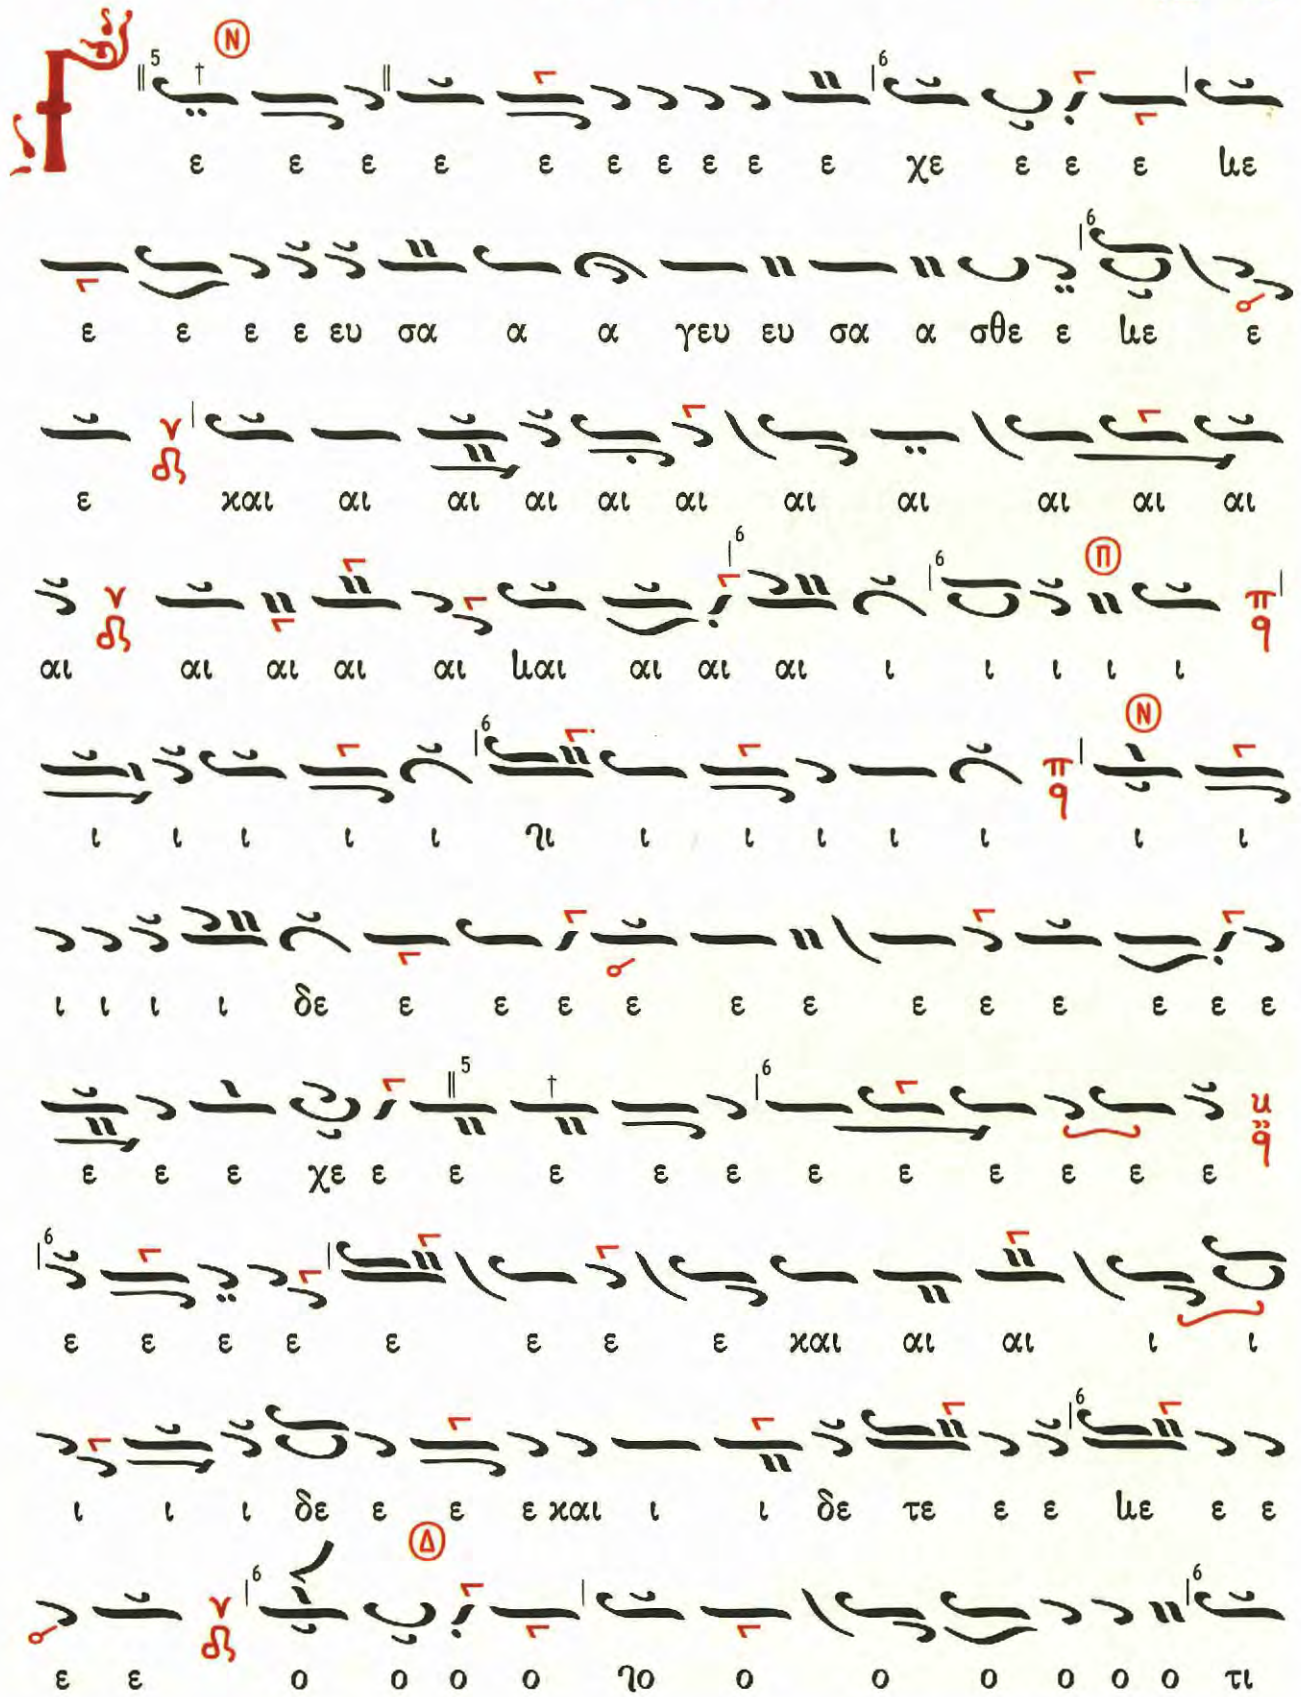 Γ 5 Ν 6
ε ε ε ε ε ε ε ε ε ε χε ε ε ε νε
6
ε ε ε ε ευ σα α α γευ ευ σα α σθε ε νε ε
ε και αι αι αι αι αι αι αι αι αι αι
6 6 Π
αι αι αι αι αι ναι αι αι αι ι ι ι ι ι
6 Ν
ι ι ι ι ι ι ι ι ι ι ι ι
ι ι ι ι δε ε ε ε ε ε ε ε ε ε ε ε ε
5 6
ε ε ε χε ε ε ε ε ε ε ε ε ε ε ε
6
ε ε ε ε ε ε ε ε και αι αι ι ι
6
ι ι ι δε ε ε ε και ι ι δε τε ε ε νε ε ε
6 Δ 6
ε ε ο ο ο ο ο ο ο ο ο ο τι